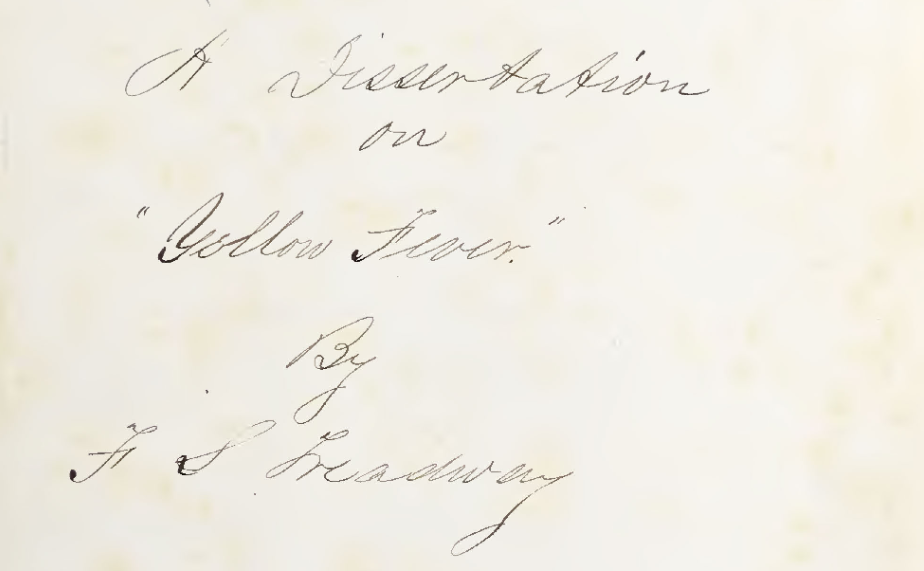 A Dissertation
on
"Yellow Fever."
By
F S Treadway